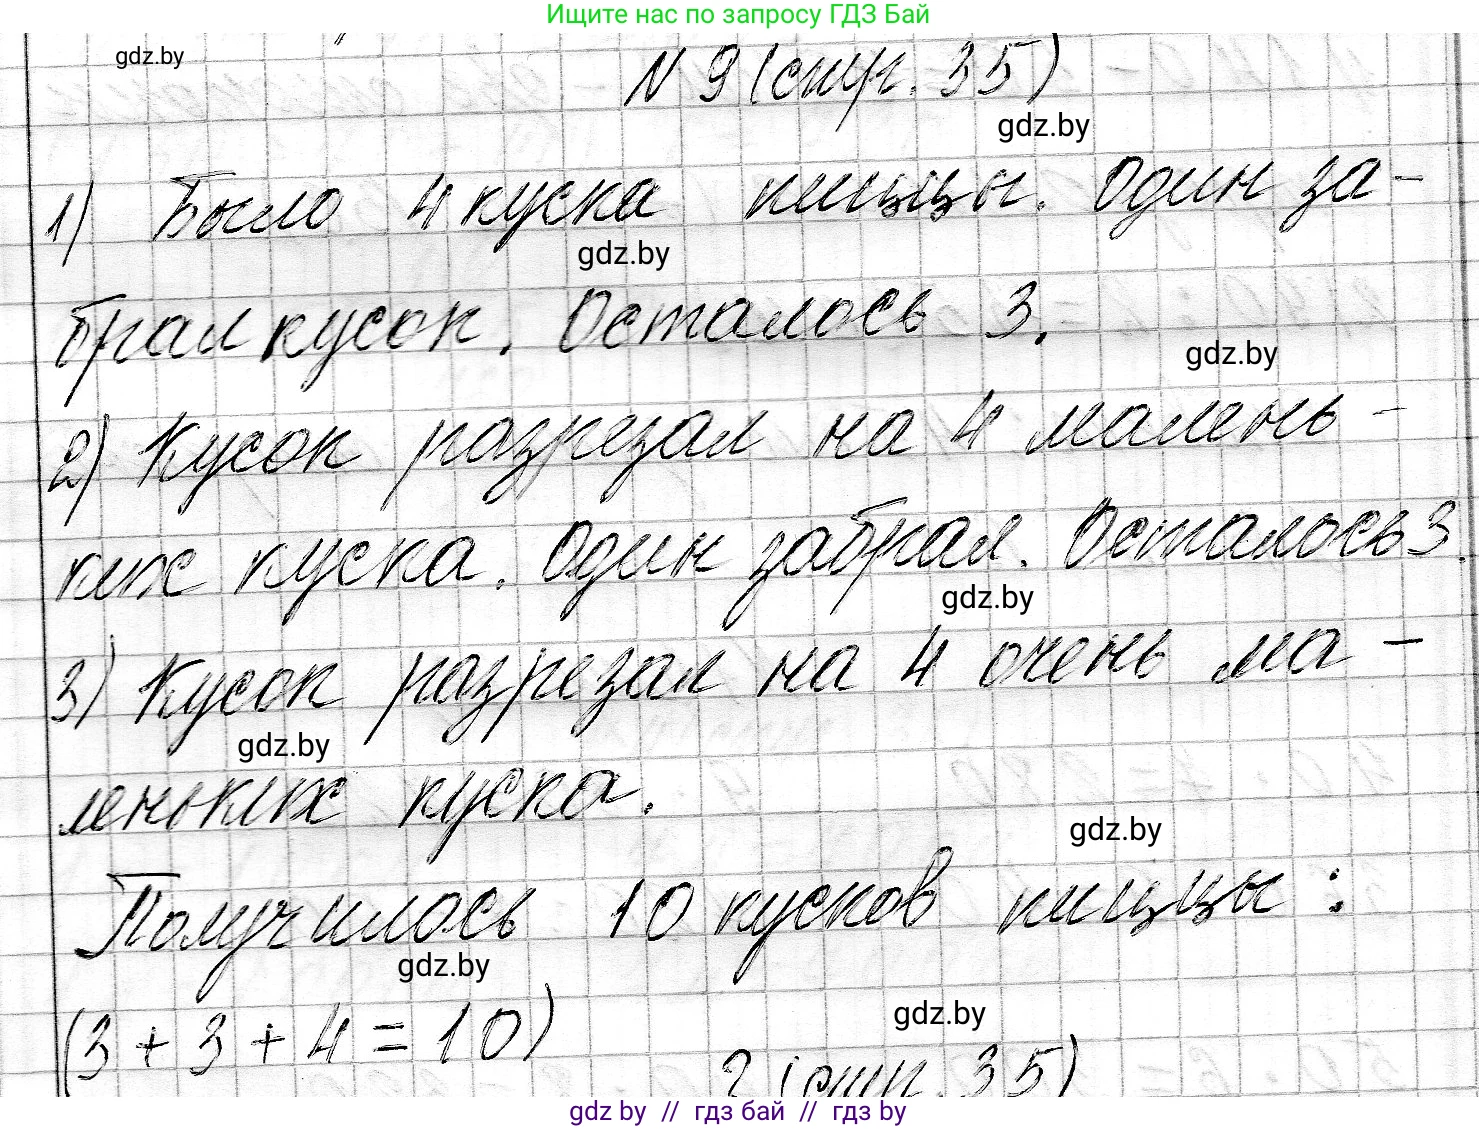 Ищите нас по запросу ГДЗ Бай
gdz.by
№ 9 (стр. 35)
gdz.by
1) Было 4 куска пиццы. Один за-
gdz.by
брал кусок. Осталось 3.
gdz.by
2) Кусок разрезал на 4 малень-
ких куска. Один забрал. Осталось 3.
gdz.by
3) Кусок разрезал на 4 очень ма-
gdz.by
леньких куска.
gdz.by
Получилось 10 кусков пиццы:
gdz.by
(3 + 3 + 4 = 10)
gdz.by
(стр. 35)
gdz by // гдз бай // гдз by